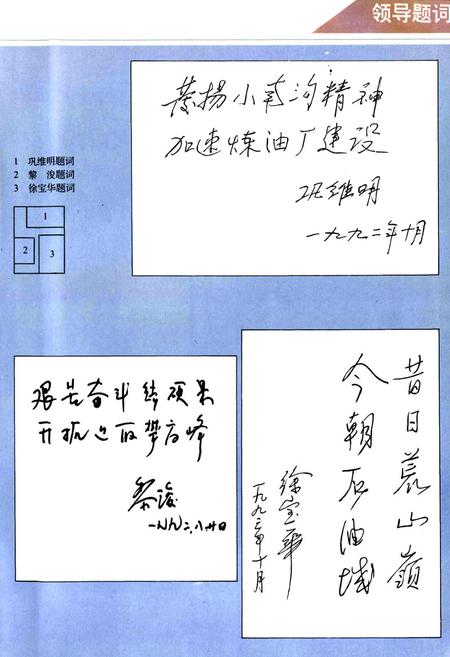 领导题词
发扬小荒沟精神
加速炼油厂建设
巩维明
一九九二年十月
1 巩维明题词
2 黎 浚题词
3 徐宝华题词
1
2
3
艰苦奋斗结硕果
开拓进取攀高峰
黎浚
一九九二.八.廿日
昔日荒山岭
今朝石油城
徐宝华
一九九二年十月